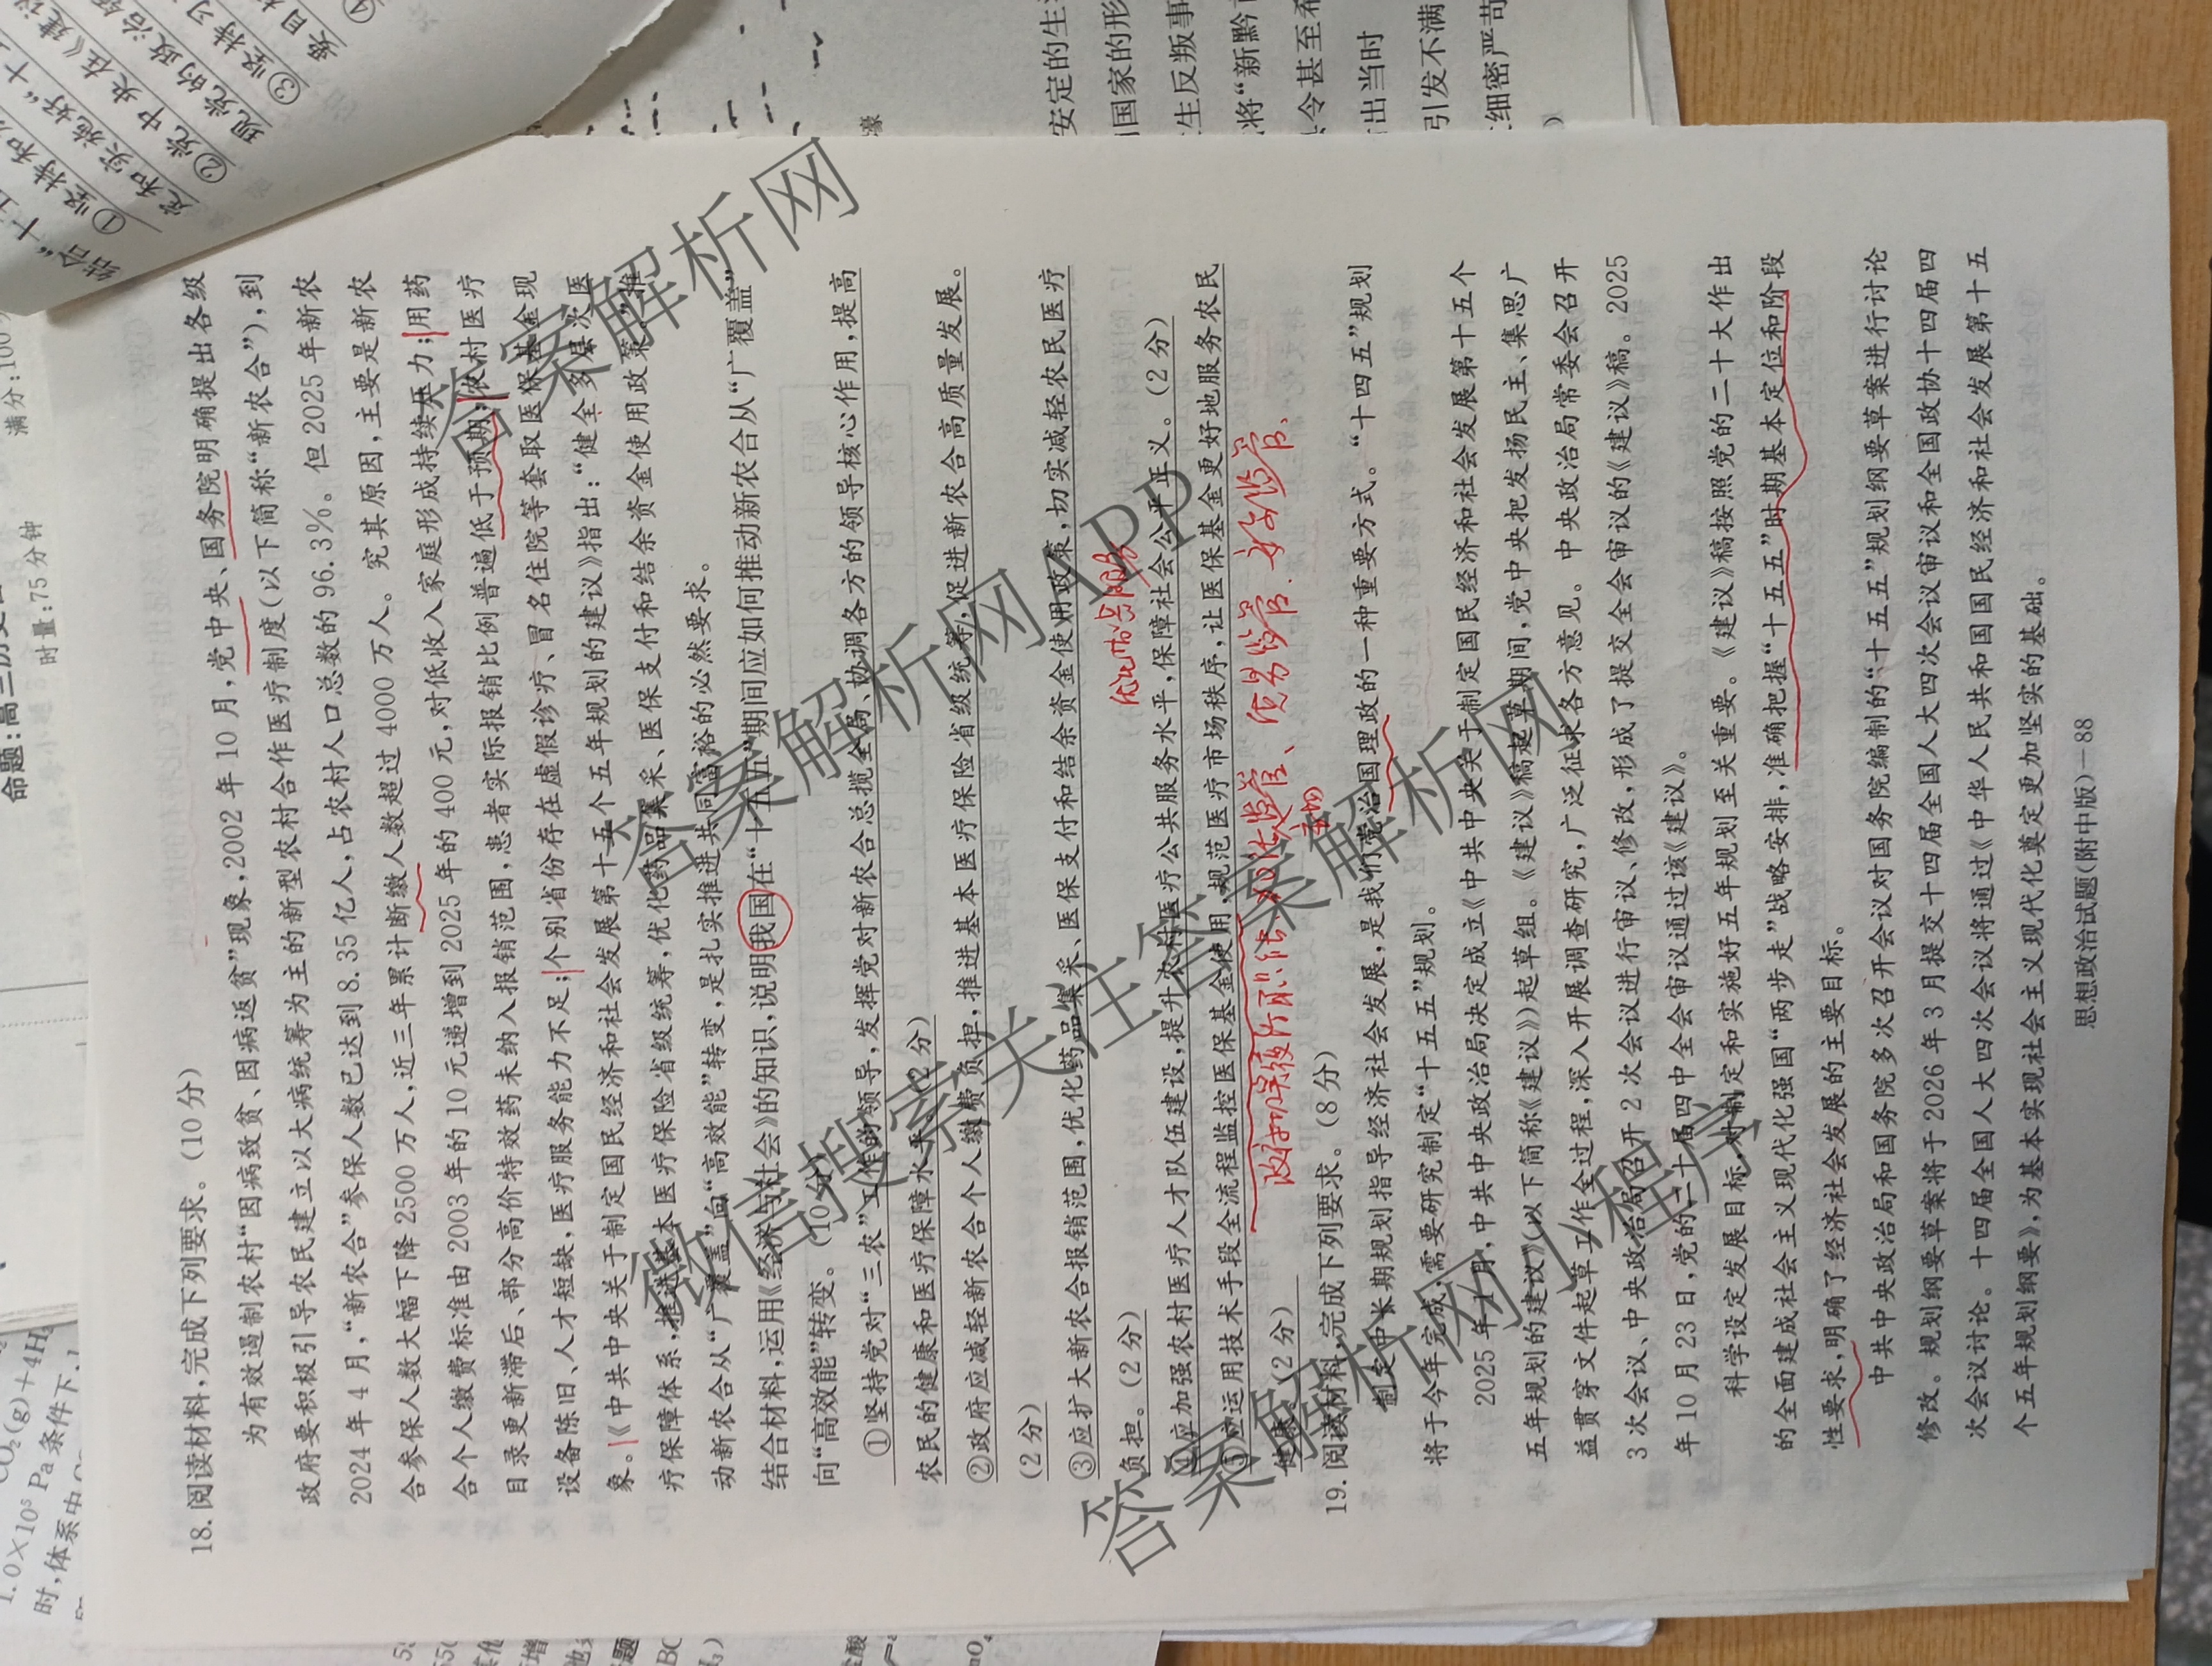 18. 阅读材料,完成下列要求。(10分)
为有效遏制农村“因病致贫、因病返贫”现象,2002年10月,党中央、国务院明确提出各级
政府要积极引导农民建立以大病统筹为主的新型农村合作医疗制度(以下简称“新农合”),到
2024年4月,“新农合”参保人数已达到8.35亿人,占农村人口总数的96.3%。但2025年新农
合参保人数大幅下降2500万人,近三年累计断缴人数超过4000万人。究其原因,主要是新农
合个人缴费标准由2003年的10元递增到2025年的400元,对低收入家庭形成持续压力;用药
目录更新滞后、部分高价特效药未纳入报销范围,患者实际报销比例普遍低于预期;农村医疗
设备陈旧、人才短缺,医疗服务能力不足;个别省份存在虚假诊疗、冒名住院等套取医保基金现
象。《中共中央关于制定国民经济和社会发展第十五个五年规划的建议》指出:“健全多层次医
疗保障体系,推进基本医疗保险省级统筹,优化药品集采、医保支付和结余资金使用政策。”推
动新农合从“广覆盖”向“高效能”转变,是扎实推进共同富裕的必然要求。
结合材料,运用《经济与社会》的知识,说明我国在“十五五”期间应如何推动新农合从“广覆盖”
向“高效能”转变。(10分)
①坚持党对“三农”工作的领导,发挥党对新农合总揽全局、协调各方的领导核心作用,提高
农民的健康和医疗保障水平。(2分)
②政府应减轻新农合个人缴费负担,推进基本医疗保险省级统筹,促进新农合高质量发展。
(2分)
③应扩大新农合报销范围,优化药品集采、医保支付和结余资金使用政策,切实减轻农民医疗
负担。(2分)
优化吃药服务
④应加强农村医疗人才队伍建设,提升农村医疗公共服务水平,保障社会公平正义。(2分)
⑤应运用技术手段全流程监控医保基金使用,规范医疗市场秩序,让医保基金更好地服务农民
健康。(2分)
19. 阅读材料,完成下列要求。(8分)
制定中长期规划指导经济社会发展,是我们党治国理政的一种重要方式。“十四五”规划
将于今年完成,需要研究制定“十五五”规划。
2025年1月,中共中央政治局决定成立《中共中央关于制定国民经济和社会发展第十五个
五年规划的建议》(以下简称《建议》)起草组。《建议》稿起草期间,党中央把发扬民主、集思广
益贯穿文件起草工作全过程,深入开展调查研究,广泛征求各方意见。中央政治局常委会召开
3次会议、中央政治局召开2次会议进行审议、修改,形成了提交全会审议的《建议》稿。2025
年10月23日,党的二十届四中全会审议通过该《建议》。
科学设定发展目标,对制定和实施好五年规划至关重要。《建议》稿按照党的二十大作出
的全面建成社会主义现代化强国“两步走”战略安排,准确把握“十五五”时期基本定位和阶段
性要求,明确了经济社会发展的主要目标。
中共中央政治局和国务院多次召开会议对国务院编制的“十五五”规划纲要草案进行讨论
修改。规划纲要草案将于2026年3月提交十四届全国人大四次会议审议和全国政协十四届四
次会议讨论。十四届全国人大四次会议将通过《中华人民共和国国民经济和社会发展第十五
个五年规划纲要》,为基本实现社会主义现代化奠定更加坚实的基础。
思想政治试题(附中版)-88
答案解析网
答案解析网APP
微信搜索关注答案解析网
答案解析网小程序
命题:高三历史
时量:75分钟
满分:100
安定的生
国家的形
生反叛事
将“新黔
令甚至希
出当时
引发不满
细密严苛